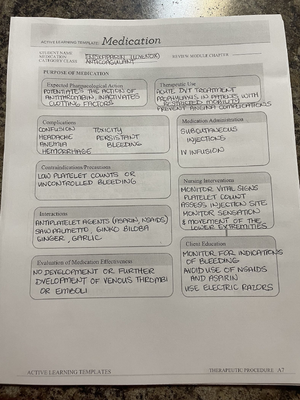 ACTIVE LEARNING TEMPLATE: Medication
STUDENT NAME
MEDICATION ENOXAPARIN (LOVENOX) REVIEW MODULE CHAPTER
CATEGORY CLASS ANTICOAGULANT
PURPOSE OF MEDICATION
Expected Pharmacological Action
POTENTIATES THE ACTION OF
ANTITHROMBIN, INACTIVATES
CLOTTING FACTORS
Therapeutic Use
ACUTE DVT TREATMENT
PROPHYLAXIS IN PATIENTS WITH
RESTRICTED MOBILITY
PREVENT ANGINA COMPLICATIONS
Complications
CONFUSION TOXICITY
HEADACHE PERSISTANT
ANEMIA BLEEDING
HEMORRHAGE
Medication Administration
SUBCUTANEOUS
INJECTIONS
IV INFUSION
Contraindications/Precautions
LOW PLATELET COUNTS OR
UNCONTROLLED BLEEDING
Nursing Interventions
MONITOR VITAL SIGNS
PLATELET COUNT
ASSESS INJECTION SITE
MONITOR SENSATION
& MOVEMENT OF THE
LOWER EXTREMITIES
Interactions
ANTIPLATELET AGENTS (ASPIRIN, NSAIDS)
SAW PALMETTO, GINKO BILOBA
GINGER, GARLIC
Client Education
MONITOR FOR INDICATIONS
OF BLEEDING
AVOID USE OF NSAIDS
AND ASPIRIN
USE ELECTRIC RAZORS
Evaluation of Medication Effectiveness
NO DEVELOPMENT OR FURTHER
DVELOPMENT OF VENOUS THROMBI
OR EMBOLI
ACTIVE LEARNING TEMPLATES THERAPEUTIC PROCEDURE A7